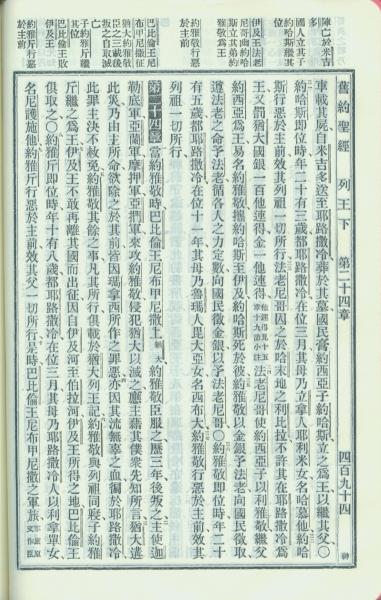 舊約聖經 列王下 第二十四章 四百九十四
陣亡於米吉多
國人立其子約哈斯繼其位
約哈斯行惡於主前
伊及王法老尼哥幽約哈斯立其弟約雅敬為王
約雅敬行惡於主前
巴比倫王尼布甲尼撒攻猶大約雅敬臣之三載後叛之自取滅亡
子約雅斤繼其位
巴比倫王敗伊及王
約雅斤行惡於主前
車載其屍自米吉多送至耶路撒冷葬於其墓國民膏約西亞子約哈斯立之為王以繼其父〇
約哈斯即位時年二十有三歲都耶路撒冷在位三月其母乃立拿人耶利米女名哈慕他約哈
斯行惡於主前效其列祖一切所行法老尼哥囚之於哈末地之利比拉不許其在耶路撒冷為
王又罰猶大國銀一百他連得金一他連得法老尼哥使約西亞子以利雅敬繼父
約西亞為王易名約雅敬攜約哈斯至伊及約哈斯死於彼約雅敬以金銀予法老向國民徵取
遵法老之命予法老循各人之力定數向國民徵金銀以予法老尼哥〇約雅敬即位時年二十
有五歲都耶路撒冷在位十一年其母乃魯瑪人毘大亞女名西布大約雅敬行惡於主前效其
列祖一切所行
第二十四章 當約雅敬時巴比倫王尼布甲尼撒上 約雅敬臣服之歷三年後叛之主使迦
勒底軍亞蘭軍摩押軍亞捫軍來攻約雅敬侵犯猶大以滅之應主藉其僕眾先知所言猶大遘
此災乃由主所命欲除之於其前皆因瑪拿西所作之罪惡亦因其流無辜之血彌於耶路撒冷
此罪主決不赦免約雅敬其餘之事凡其所行俱載於猶大列王記約雅敬與列祖同寢子約雅
斤繼之為王伊及王不敢再離其國而出征因自伊及河至伯拉河伊及王所得之地巴比倫王
俱取之〇約雅斤即位時年十有八歲都耶路撒冷在位三月其母乃耶路撒冷人以利拿單女
名尼護施他約雅斤行惡於主前效其父一切所行是時巴比倫王尼布甲尼撒之軍旅